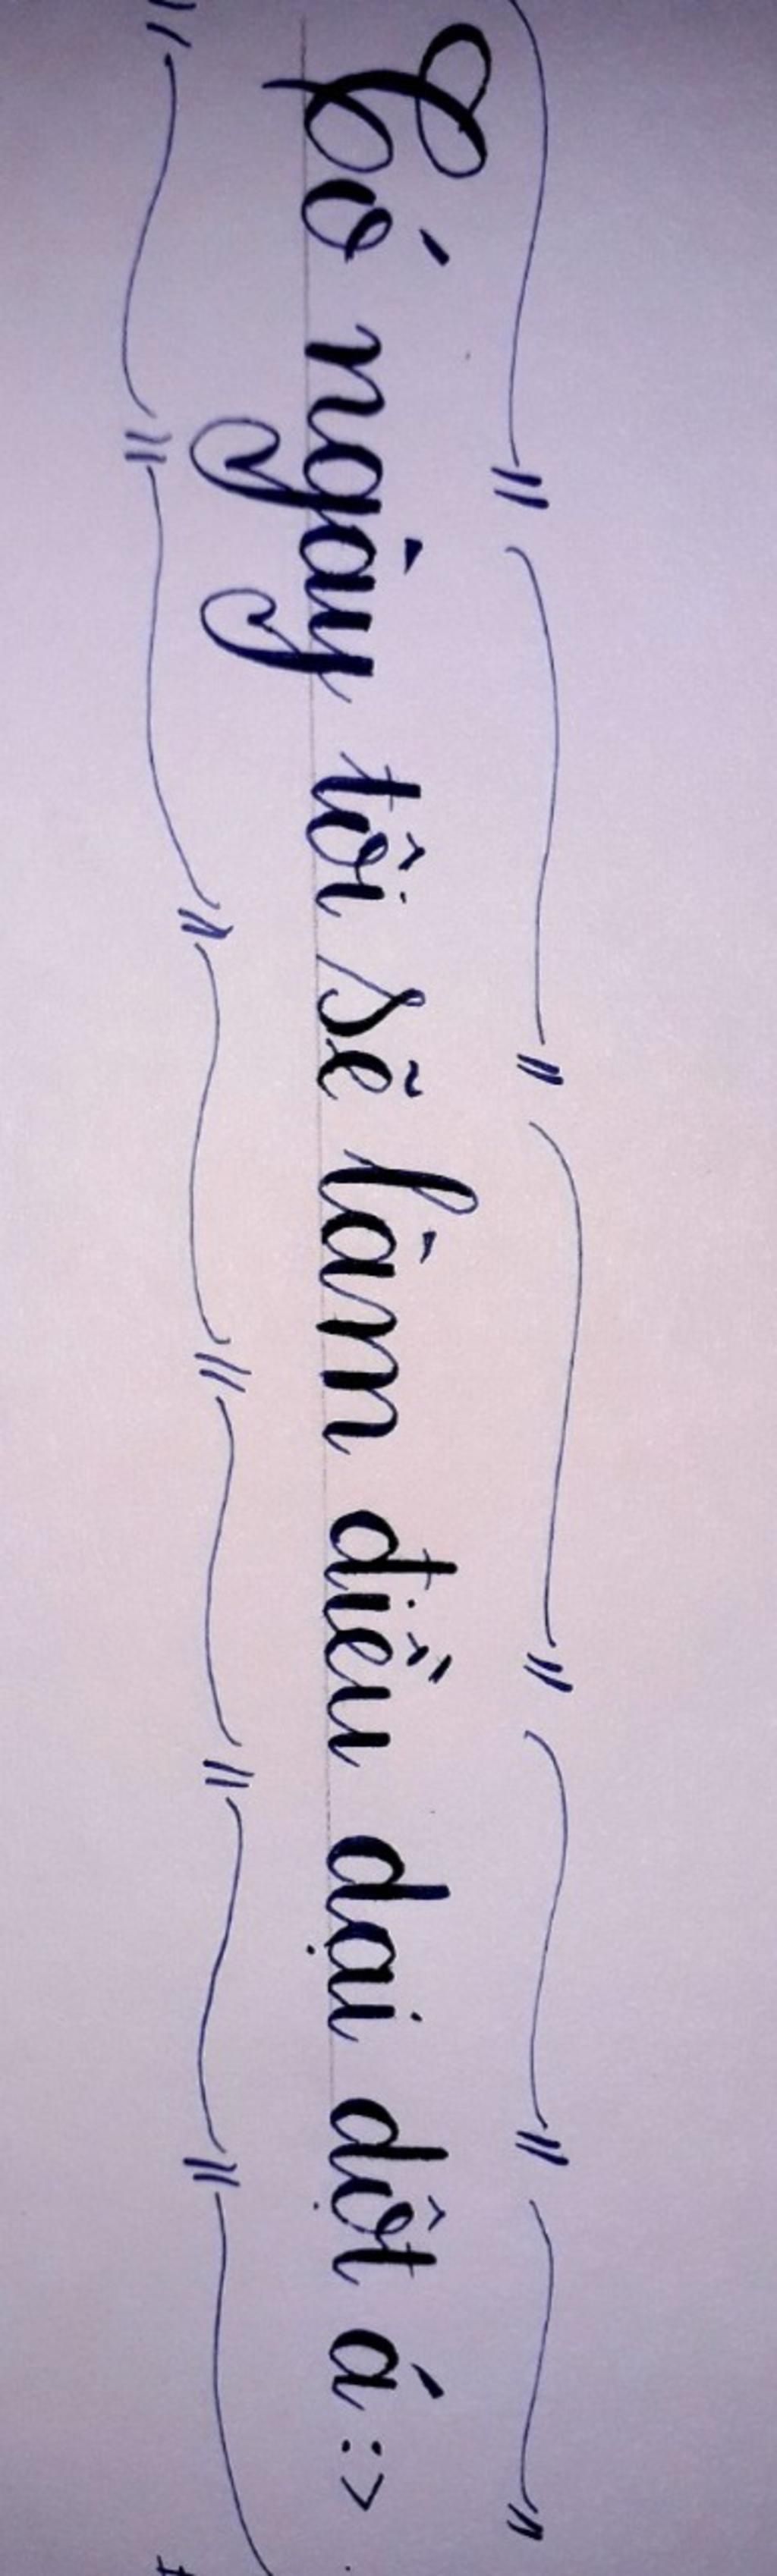 Có ngày tôi sẽ làm điều dại dột á :>